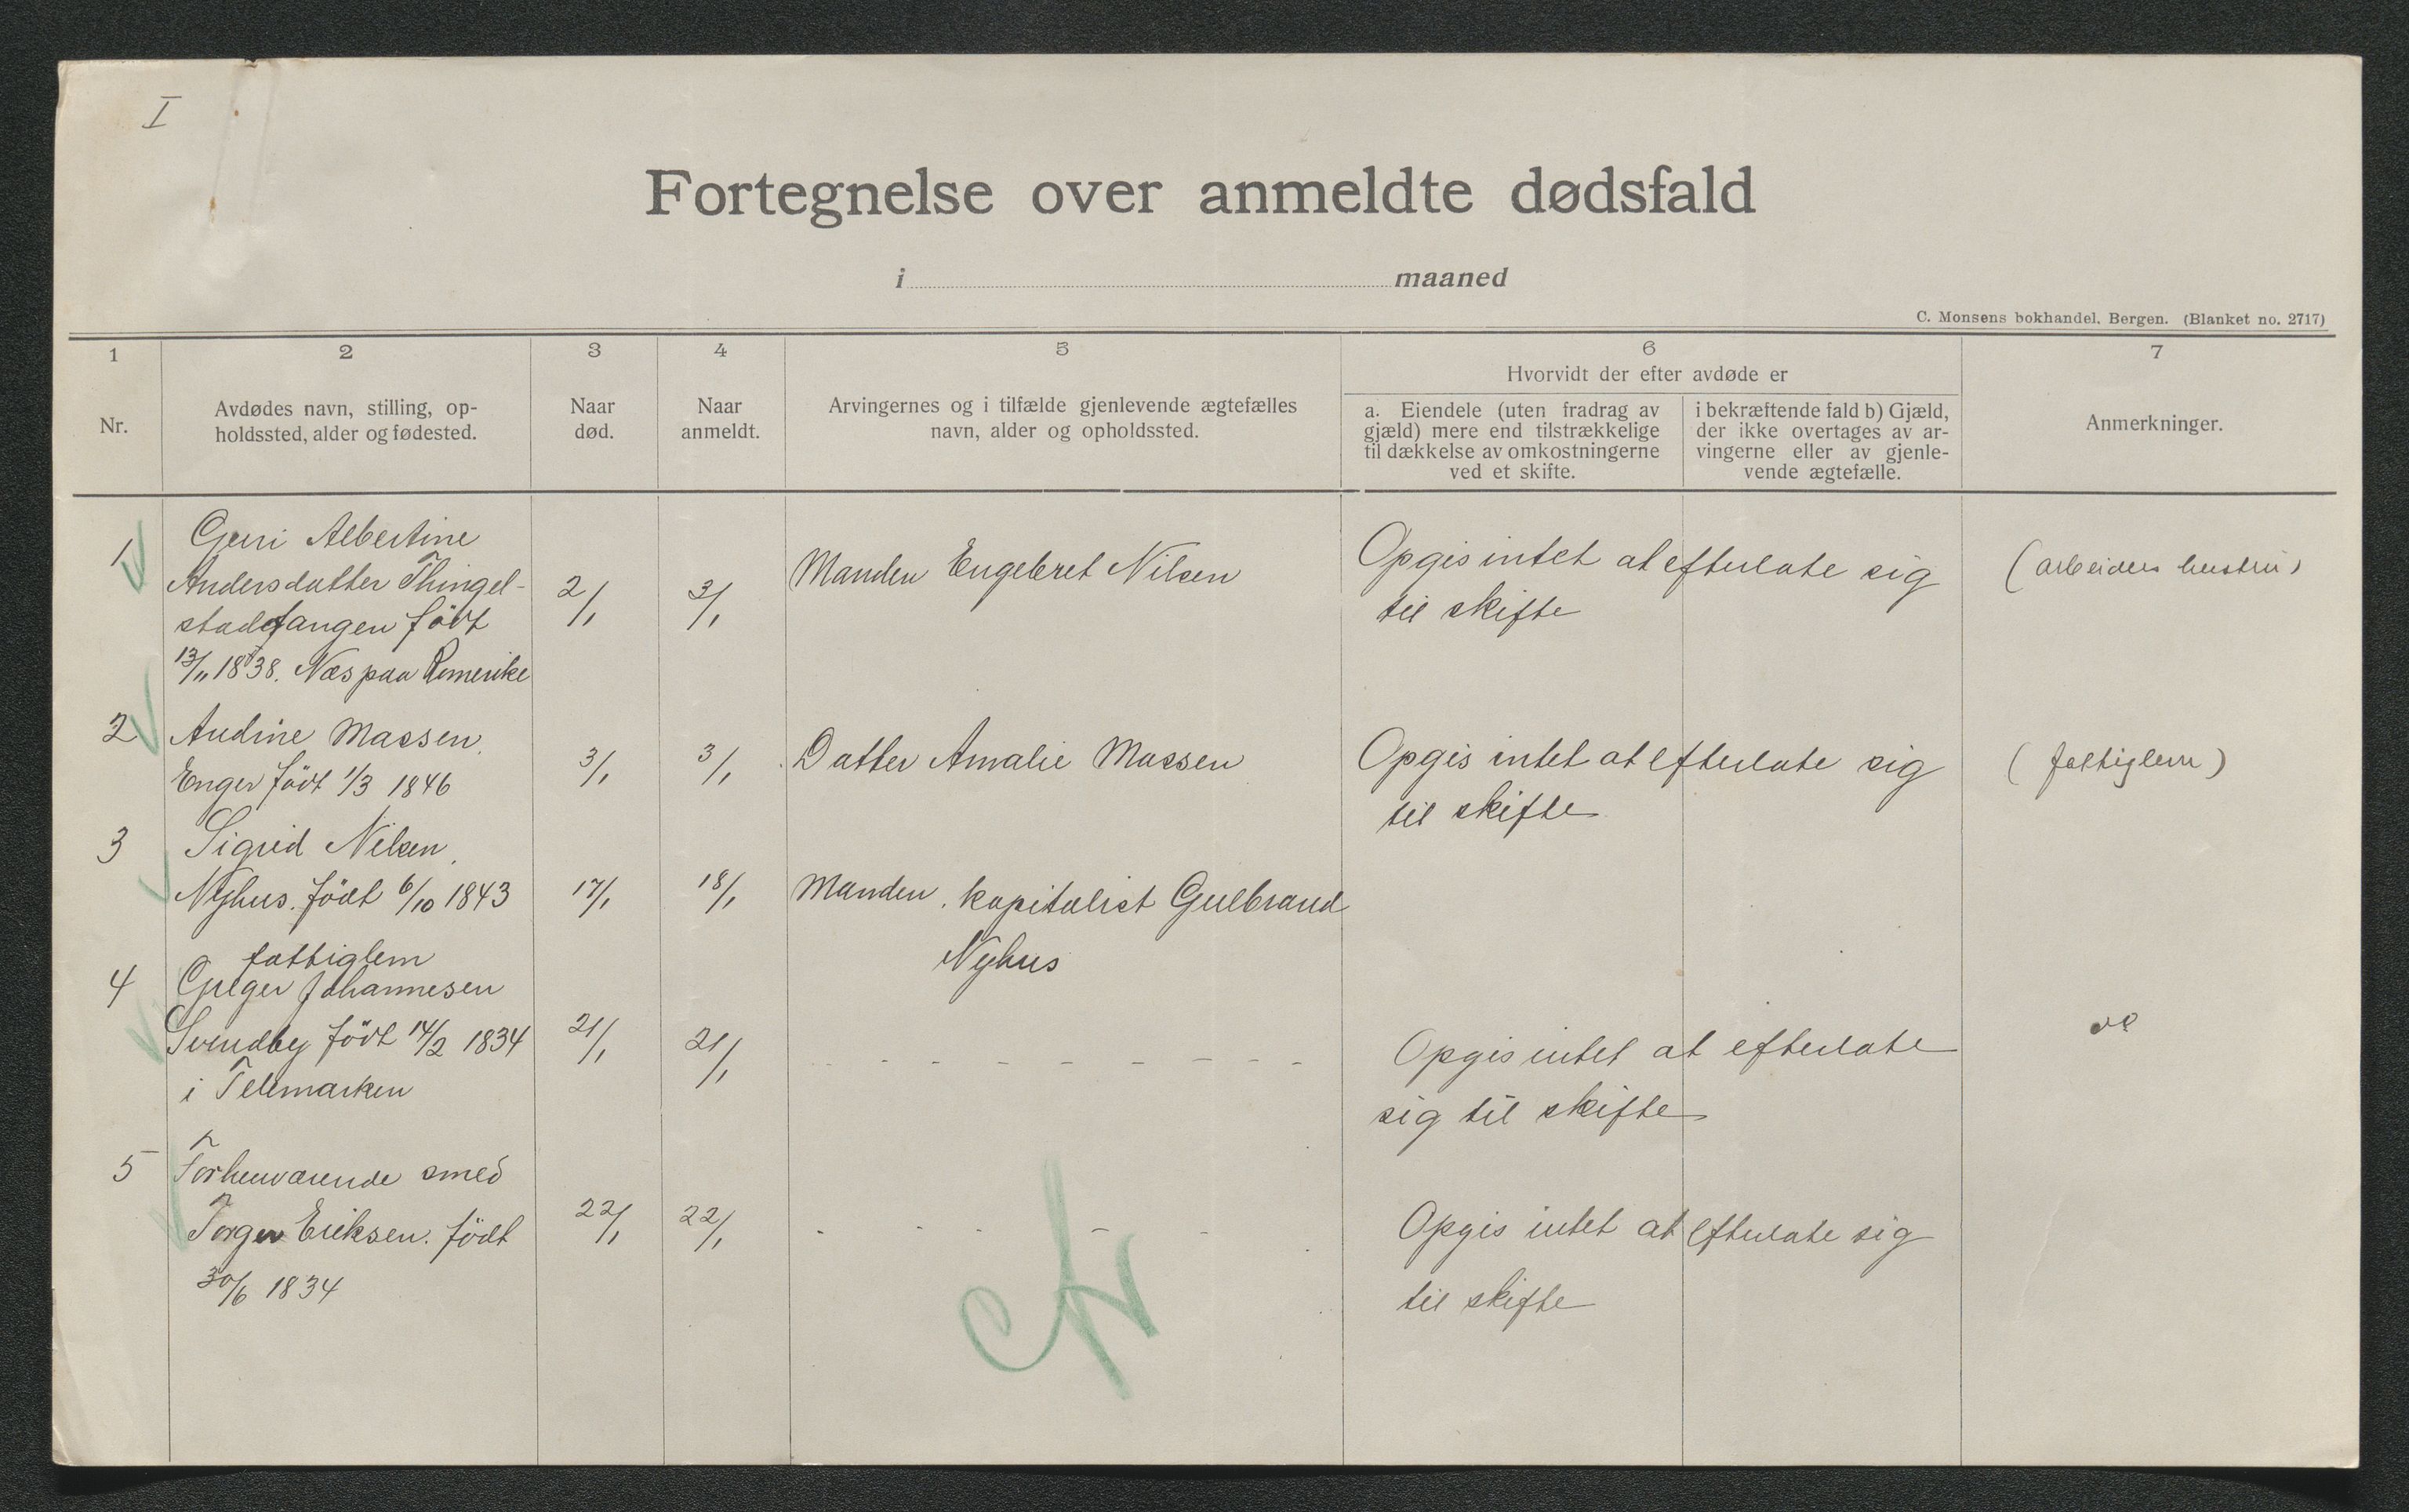 I
Fortegnelse over anmeldte dødsfald
i maaned
C. Monsens bokhandel, Bergen. (Blanket no. 2717)
1
2
3
4
5
6
7
Nr.
Avdødes navn, stilling, op-
holdssted, alder og fødested.
Naar
død.
Naar
anmeldt.
Arvingernes og i tilfælde gjenlevende ægtefælles
navn, alder og opholdssted.
Hvorvidt der efter avdøde er
a. Eiendele (uten fradrag av
gjæld) mere end tilstrækkelige
til dækkelse av omkostningerne
ved et skifte.
i bekræftende fald b) Gjæld,
der ikke overtages av ar-
vingerne eller av gjenle-
vende ægtefælle.
Anmerkninger.
1
Guri Albertine
Andersdatter Thingel-
stadfangen født
13/11 1838. Næs paa Romerike
2/1
3/1
Manden Engebret Nilsen
Opgis intet at efterlate sig
til skifte
(arbeiders hustru)
2
Andine Massen
Enger født 1/3 1846
3/1
3/1
Datter Amalie Massen
Opgis intet at efterlate sig
til skifte
(fattiglem)
3
Sigrid Nilsen
Nyhus. født 6/10 1843
17/1
18/1
Manden. kapitalist Gulbrand
Nyhus
4
fattiglem
Greger Johannesen
Svendby født 14/2 1834
i Telemarken
21/1
21/1
Opgis intet at efterlate
sig til skifte
5
Forhenværende smed
Torger Eriksen. født
30/6 1834
22/1
22/1
Opgis intet at efterlate sig
til skifte